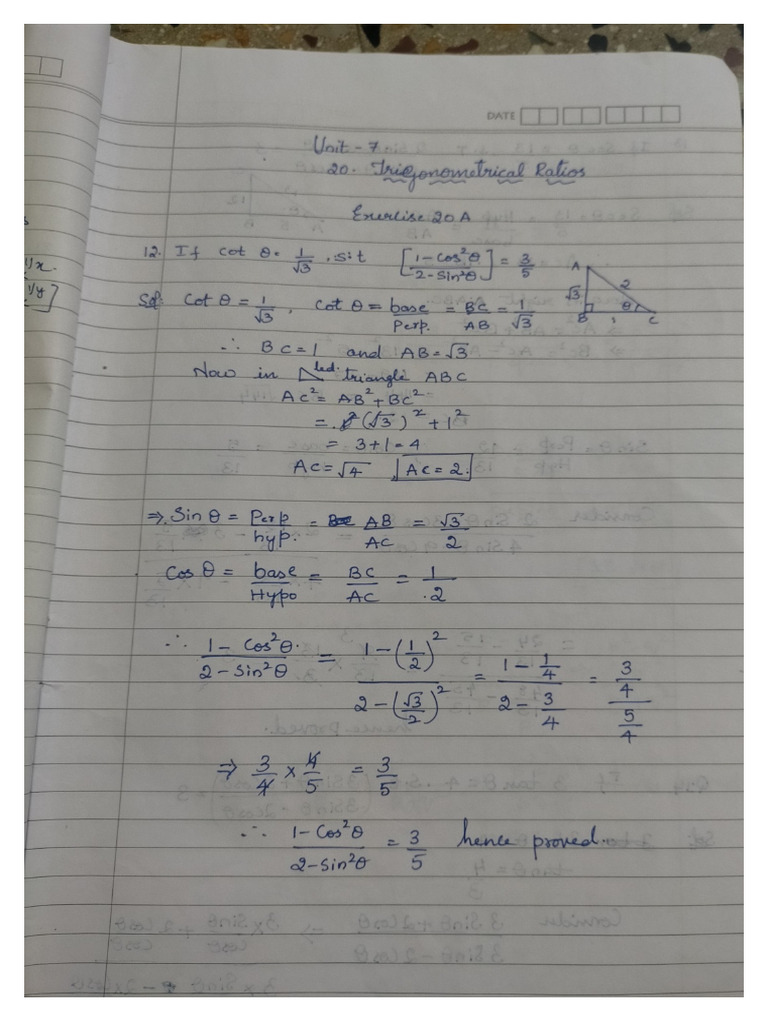 DATE
Unit - 7
20. Trigonometrical Ratios
Exercise 20A
12. If cot θ = 1/√3, s.t [1-Cos²θ / 2-Sin²θ] = 3/5
A 2 √3 θ B 1 C
Sol. Cot θ = 1/√3, Cot θ = base/Perp. = BC/AB = 1/√3
∴ BC = 1 and AB = √3
Now in led. triangle ABC
AC² = AB² + BC²
= (√3)² + 1²
= 3+1 = 4
AC = √4 AC = 2.
⇒ Sin θ = Perp/hyp. = AB/AC = √3/2
Cos θ = base/Hypo = BC/AC = 1/2
∴ 1 - Cos²θ / 2 - Sin²θ = 1 - (1/2)² / 2 - (√3/2)² = 1 - 1/4 / 2 - 3/4 = 3/4 / 5/4
⇒ 3/4 × 4/5 = 3/5
∴ 1 - Cos²θ / 2 - Sin²θ = 3/5 hence proved.